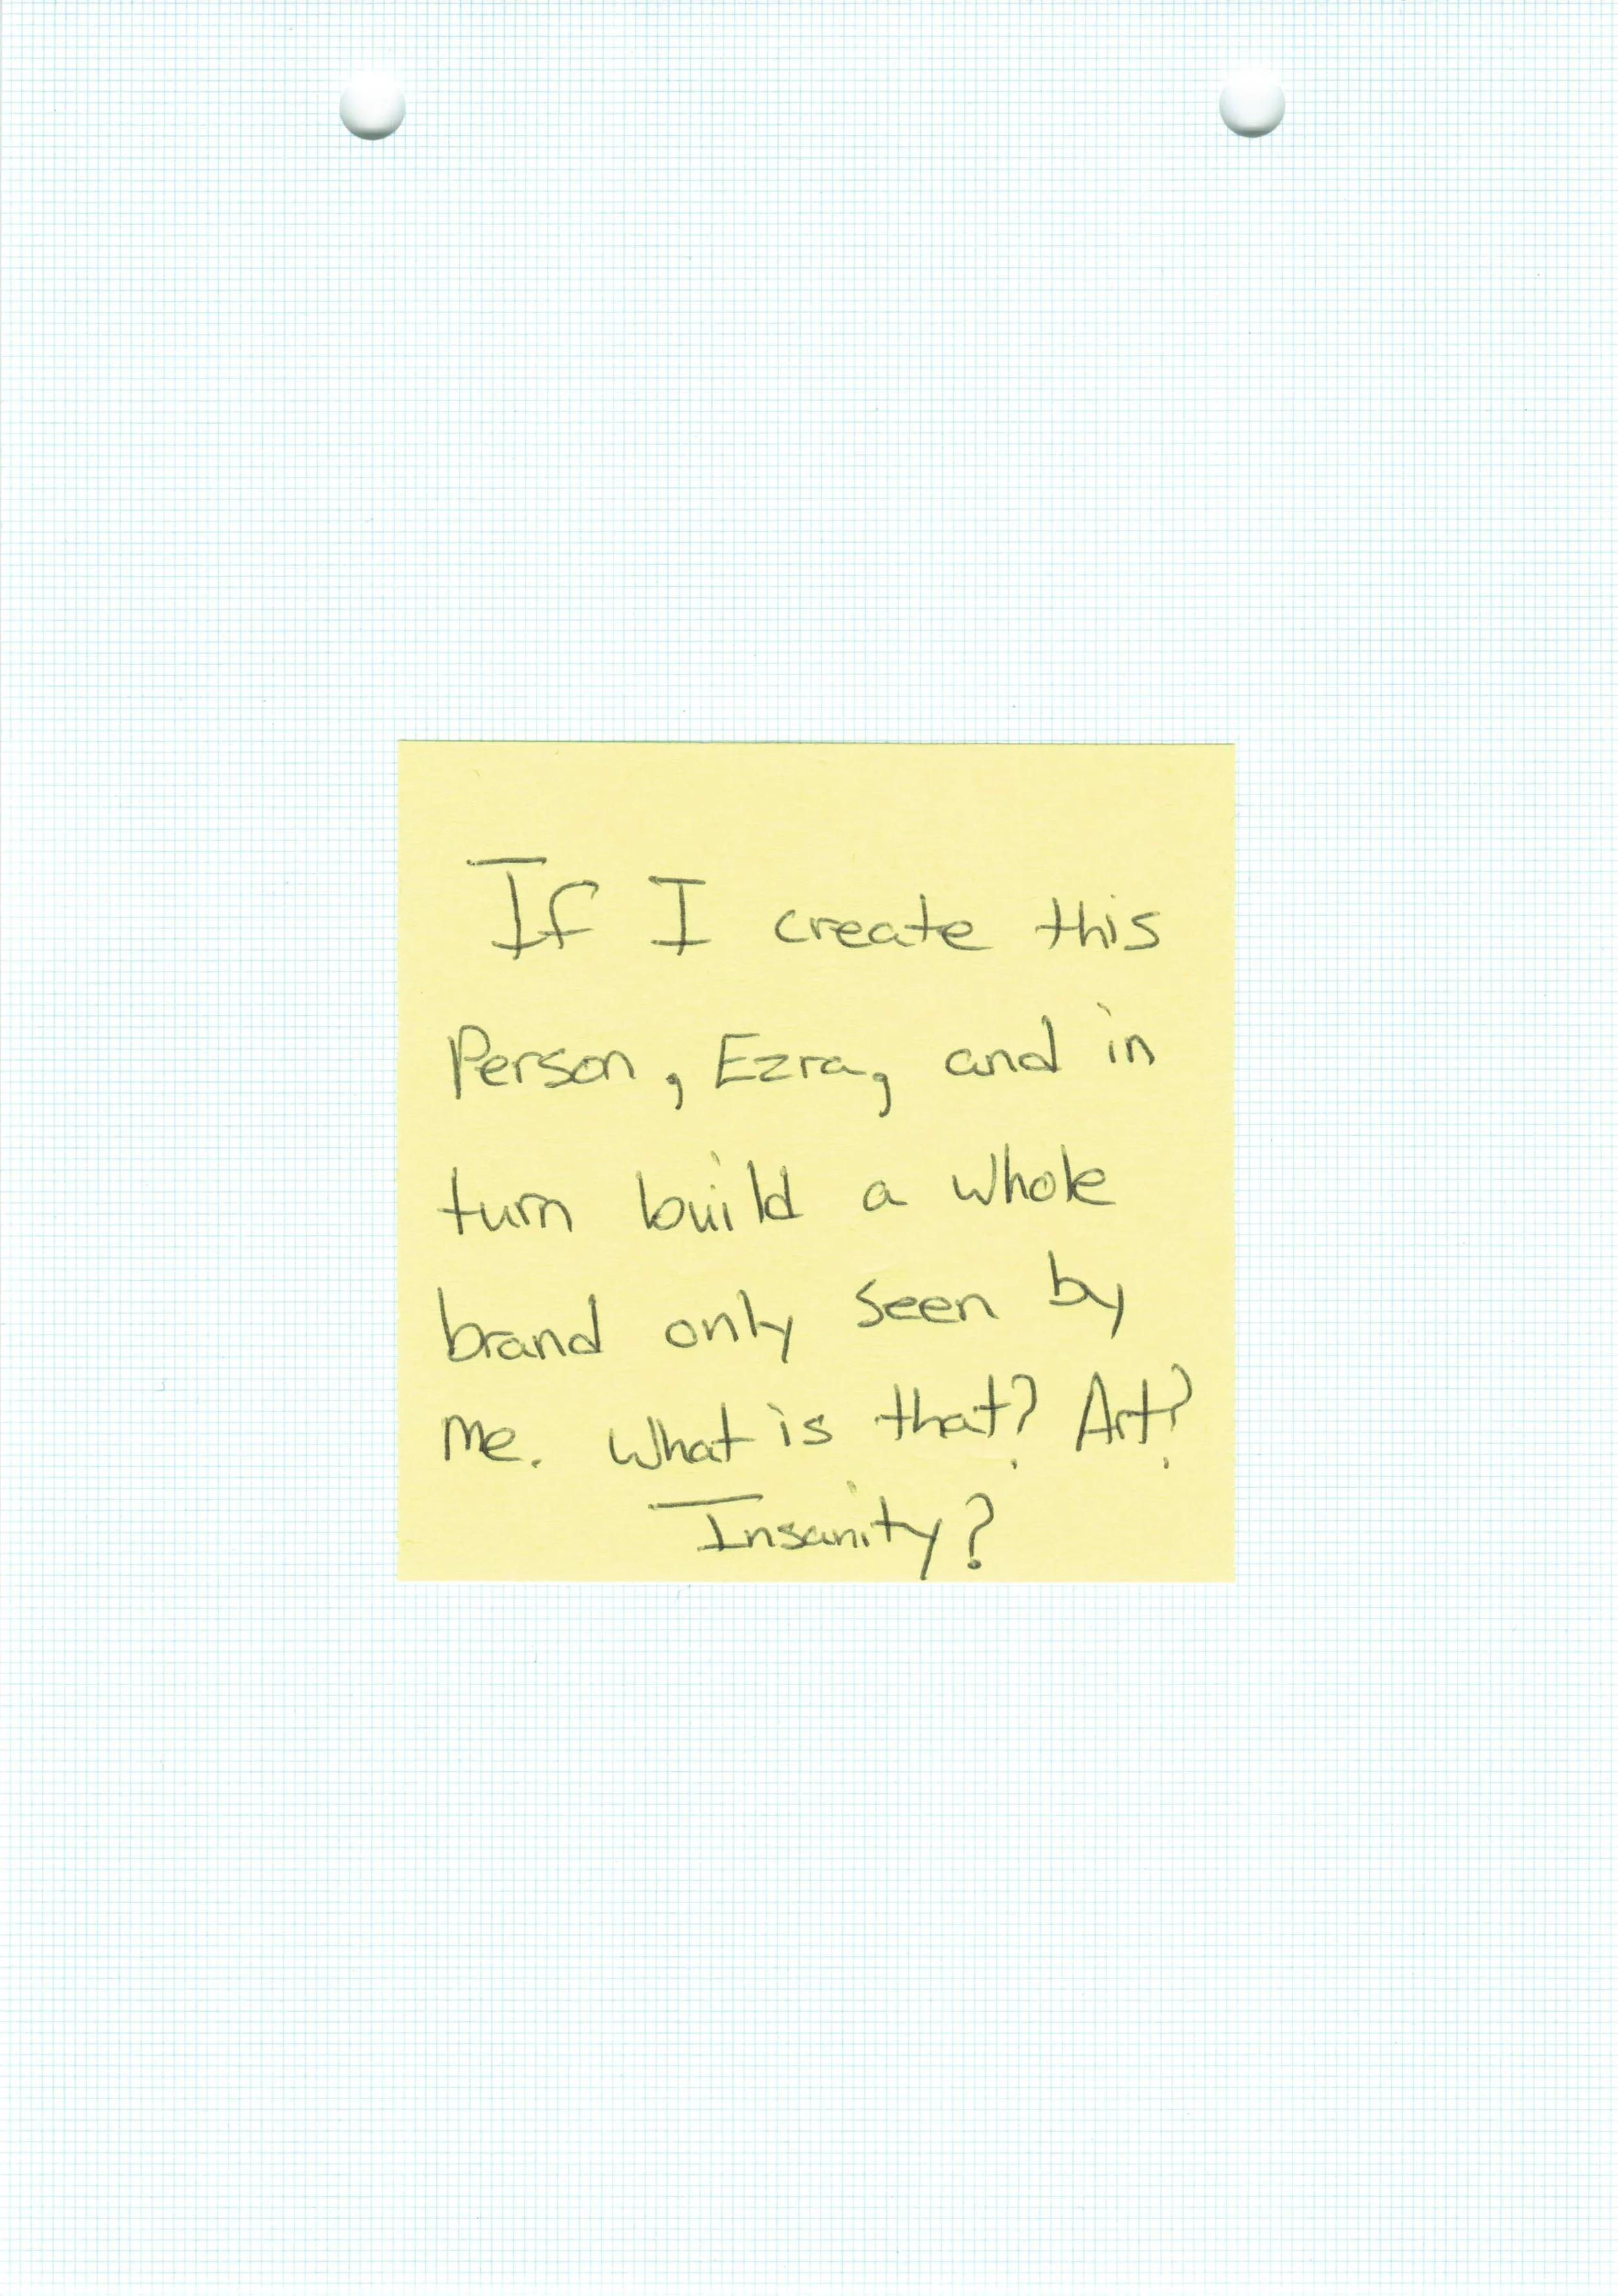 If I create this
Person, Ezra, and in
turn build a whole
brand only seen by
me. What is that? Art?
Insanity?